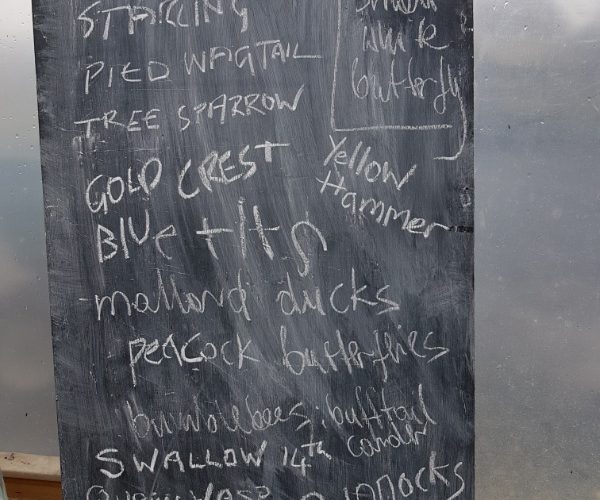 STARLING
PIED WAGTAIL
TREE SPARROW
GOLD CREST
BlUe tits
mallard ducks
peacock butterflies
bumblebees: bufftail
carder
SWALLOW 14th
QUEEN WASP
small
white
butterfly
Yellow
Hammer